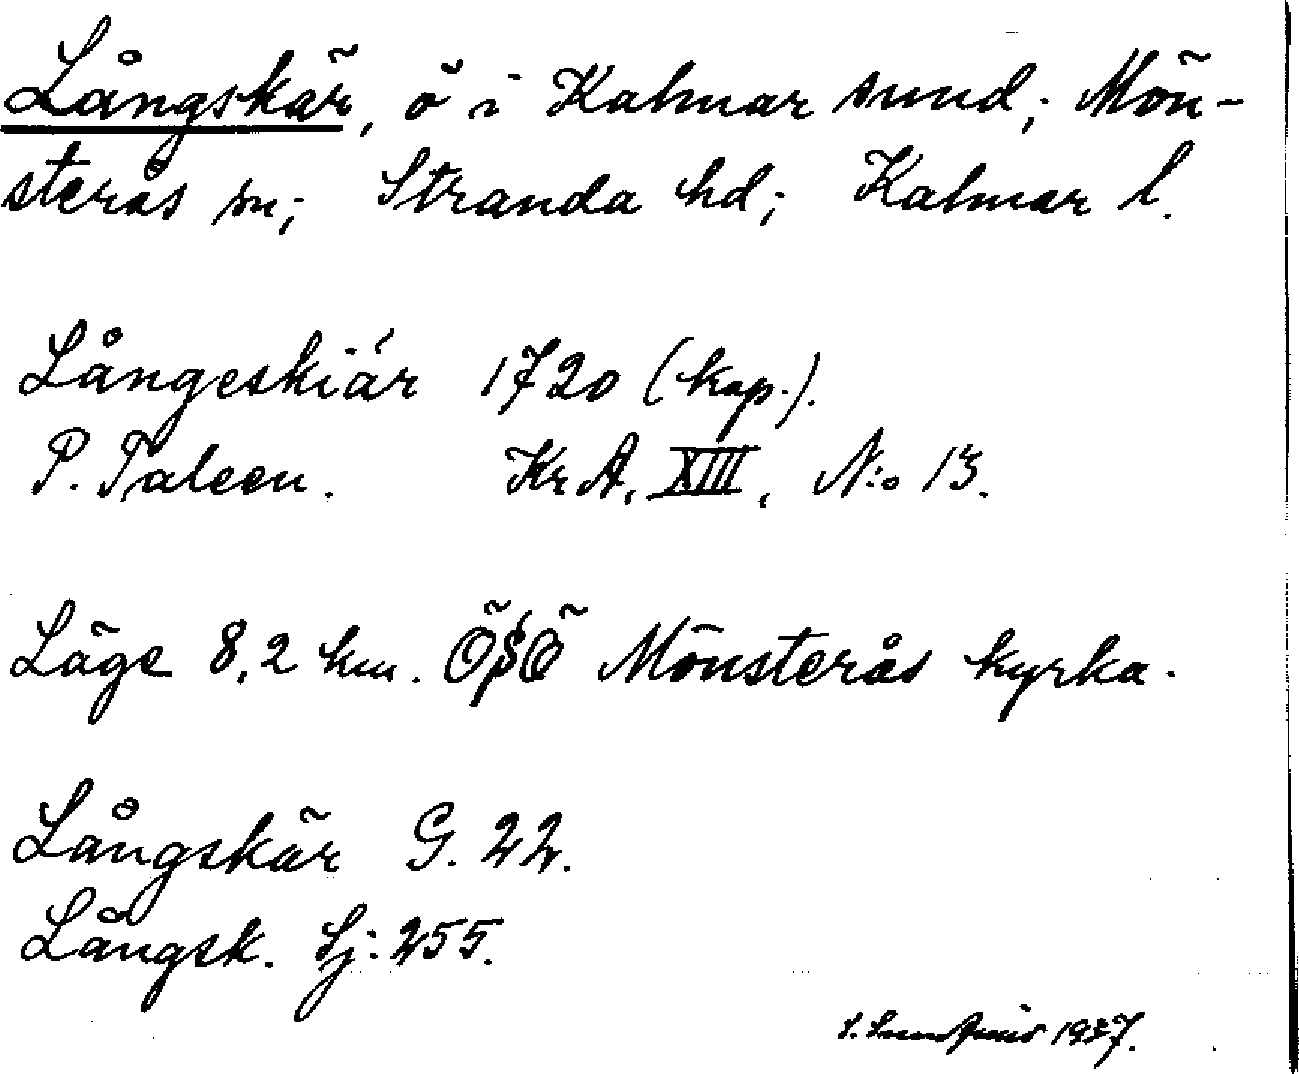 Långskär, ö i Kalmar sund; Mön-
sterås sn; Stranda hd; Kalmar l.
Långeskiár 1720 (kop.).
P. Paleen. Kr A, XIII, N:o 13.
Läge 8,2 km. ÖSÖ Mönsterås kyrka.
Långskär G. 22.
Långsk. Sj: 255.
1937.